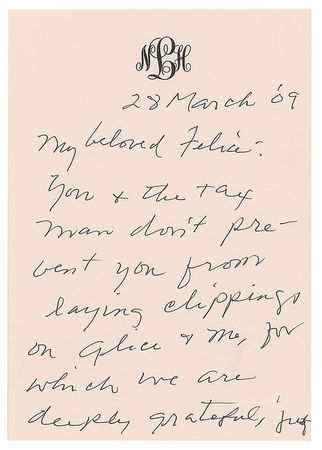 NLH
28 March '09
My beloved Felice:
You & the tax
man don't pre-
vent you from
laying clippings
on Alice & me, for
which we are
deeply grateful,